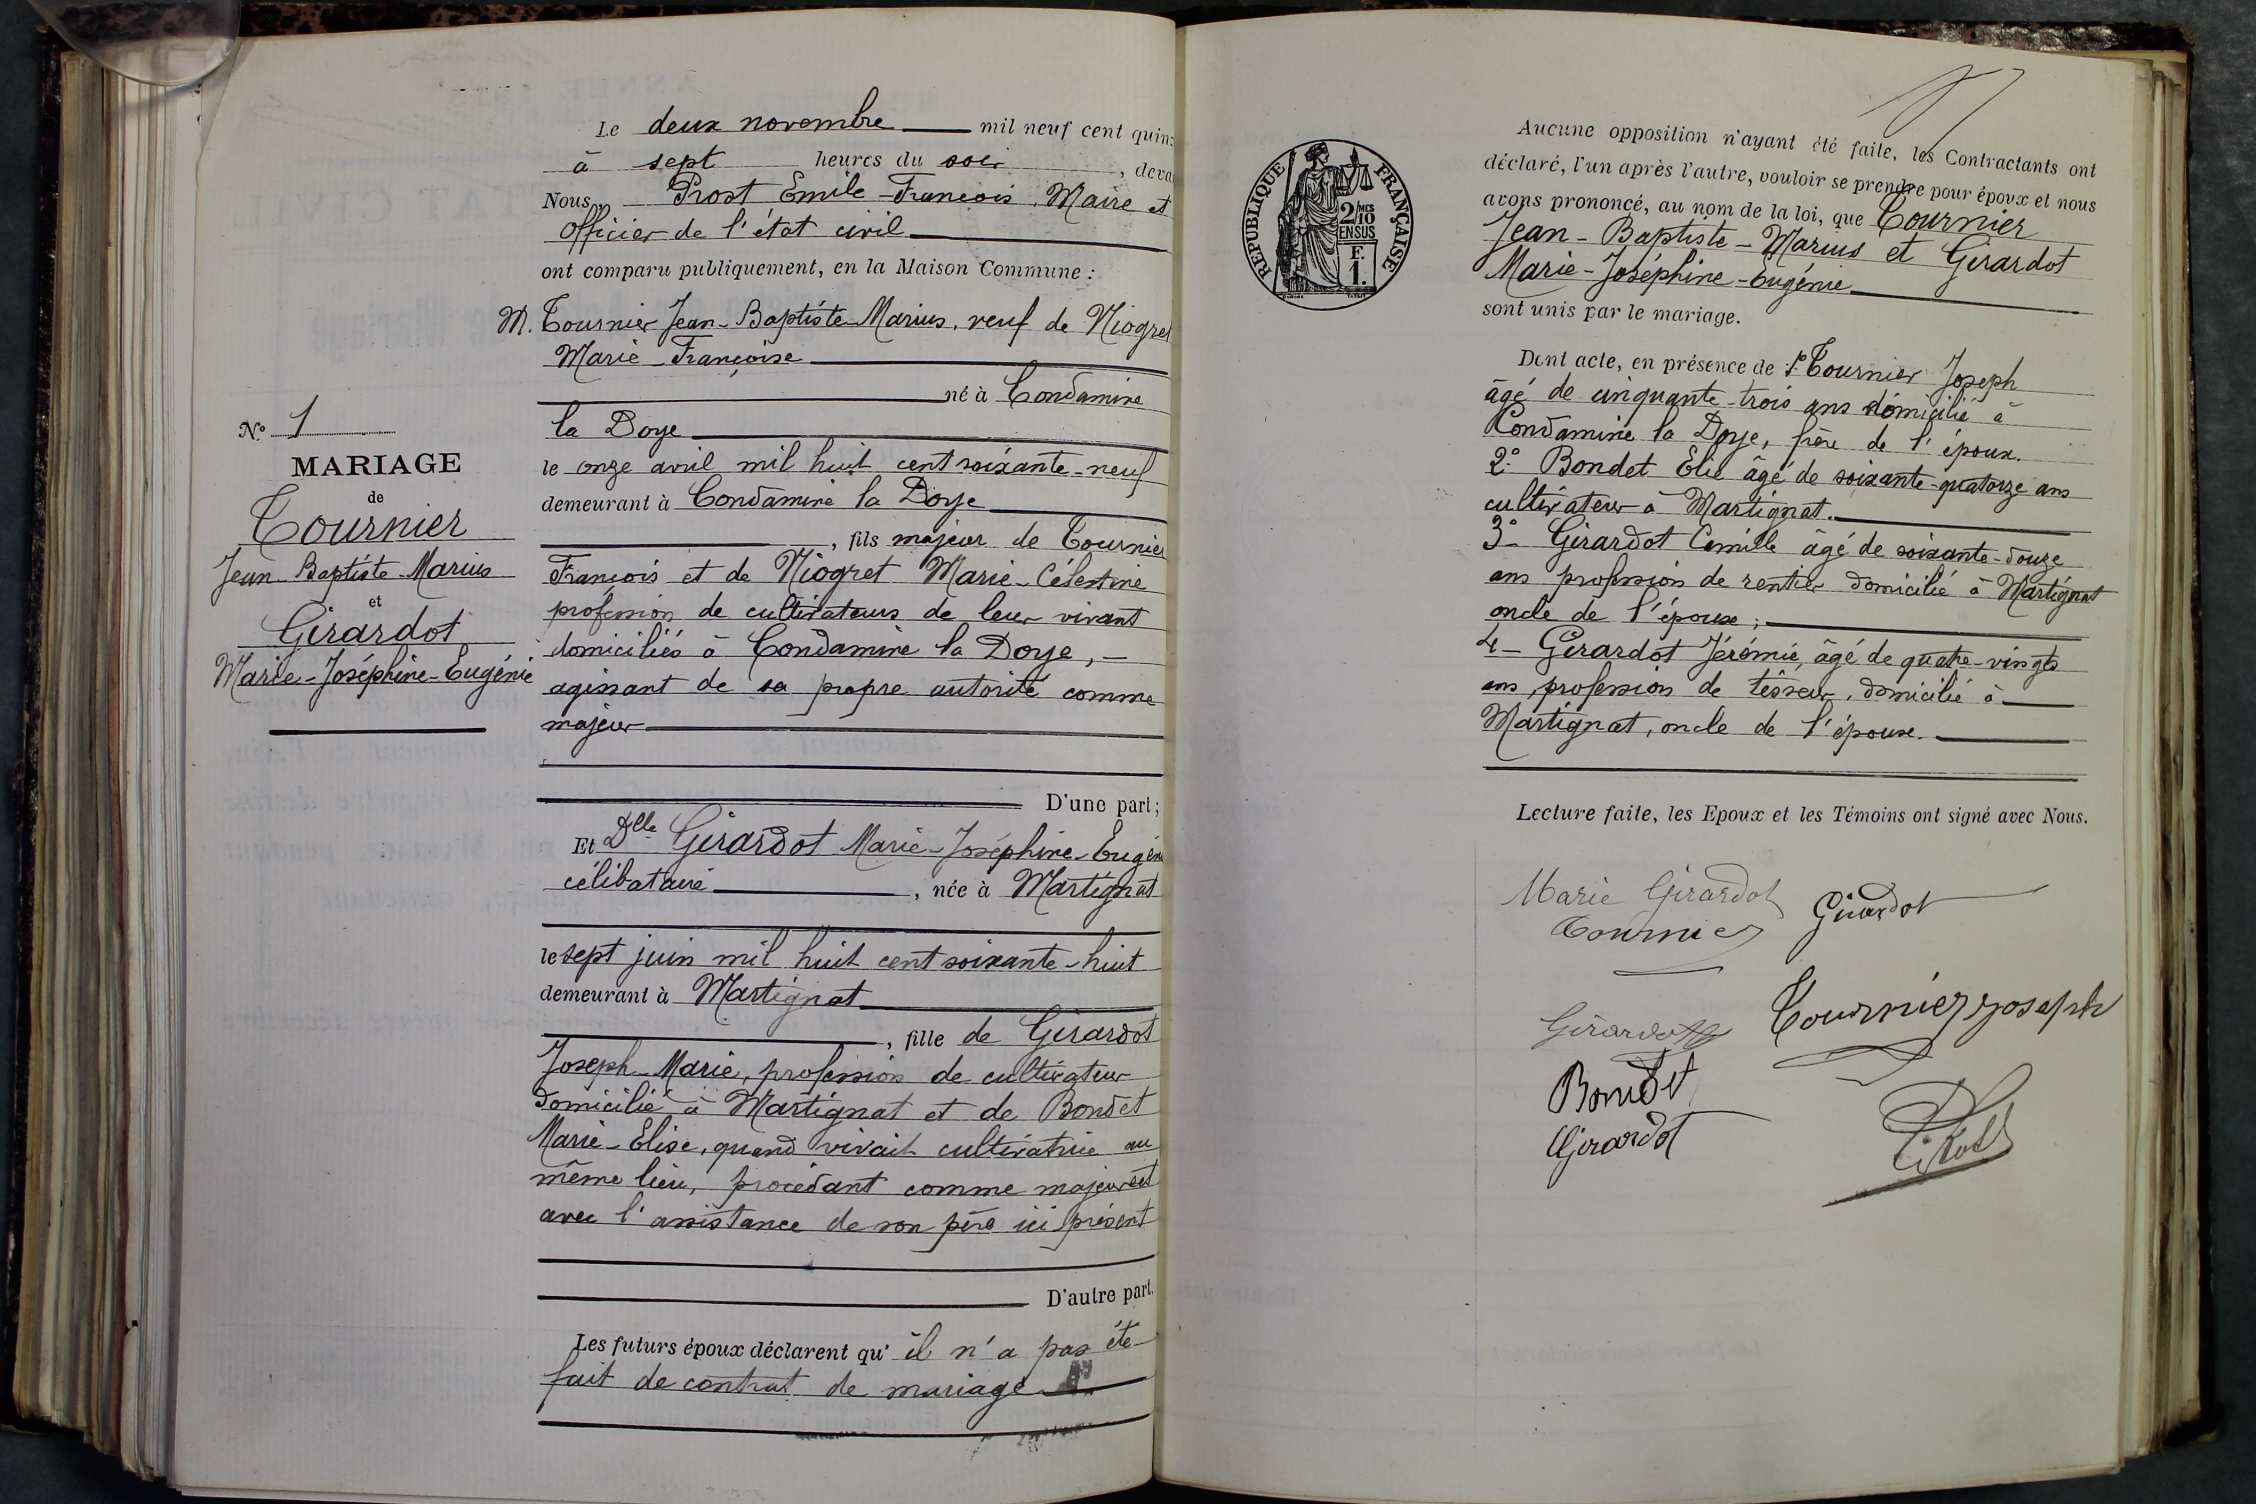 N° 1
MARIAGE
de
Tournier
Jean-Baptiste-Marius
et
Girardot
Marie-Joséphine-Eugénie
Le deux novembre mil neuf cent quin
à sept heures du soir, deva
Nous, Prost Emile-François, Maire et
officier de l'état civil
ont comparu publiquement, en la Maison Commune :
M. Tournier Jean-Baptiste-Marius, veuf de Niogret
Marie-Françoise
né à Condamine
la Doye
le onze avril mil huit cent soixante-neuf
demeurant à Condamine la Doye
, fils majeur de Tournier
François et de Niogret Marie-Célestine
profession de cultivateurs de leur vivant
domiciliés à Condamine la Doye,
agissant de sa propre autorité comme
majeur
D'une part ;
Et Dlle Girardot Marie-Joséphine-Eugénie
célibataire, née à Martignat
le sept juin mil huit cent soixante-huit
demeurant à Martignat
, fille de Girardot
Joseph-Marie, profession de cultivateur
domicilié à Martignat et de Bondet
Marie-Elise, quand vivait cultivatrice au
même lieu, procédant comme majeure et
avec l'assistance de son père ici présent
D'autre part.
Les futurs époux déclarent qu'il n'a pas été
fait de contrat de mariage
RÉPUBLIQUE FRANÇAISE
2/MES
10
EN SUS
F.
1.
Aucune opposition n'ayant été faite, les Contractants ont
déclaré, l'un après l'autre, vouloir se prendre pour époux et nous
avons prononcé, au nom de la loi, que Tournier
Jean-Baptiste-Marius et Girardot
Marie-Joséphine-Eugénie
sont unis par le mariage.
Dont acte, en présence de : 1° Tournier Joseph
âgé de cinquante-trois ans domicilié à
Condamine la Doye, frère de l'époux.
2° Bondet Elie âgé de soixante-quatorze ans
cultivateur à Martignat.
3° Girardot Camille âgé de soixante-douze
ans profession de rentier domicilié à Martignat
oncle de l'épouse ;
4 - Girardot Jérémie, âgé de quatre-vingts
ans, profession de tisseur, domicilié à
Martignat, oncle de l'épouse.
Lecture faite, les Epoux et les Témoins ont signé avec Nous.
Marie Girardot
Girardot
Tournier
Tournier Joseph
Girardot
Bondet
Girardot